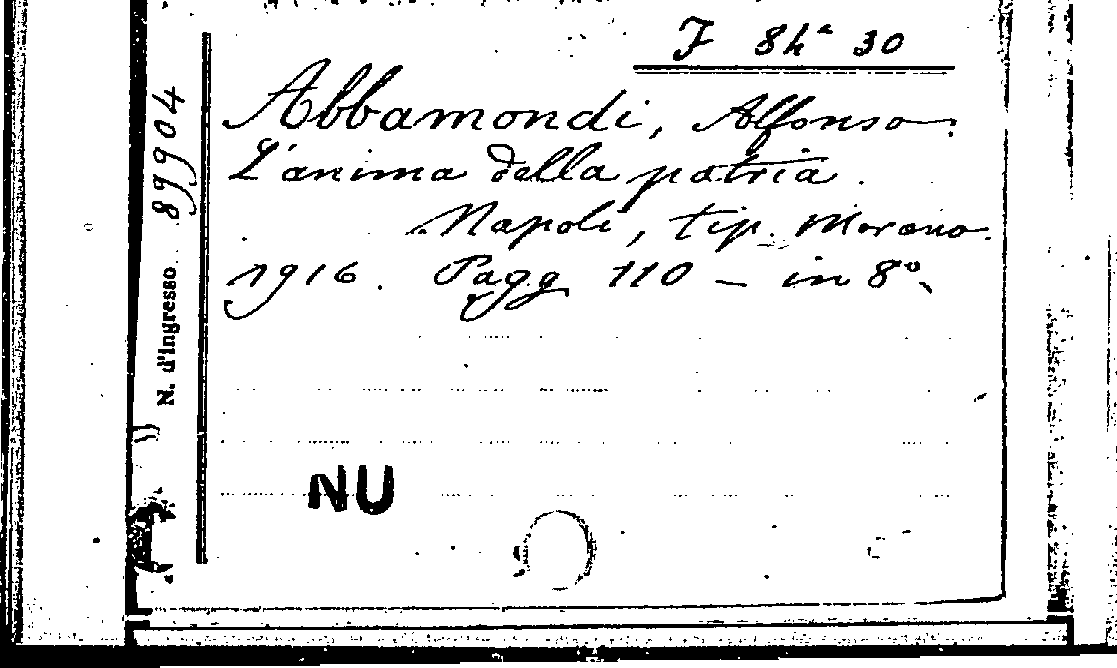 J 8hª 30
Abbamondi, Alfonso.
L'anima della patria.
Napoli, tip. Morano.
1916. Pagg 110 - in 8º.
N. d'ingresso 89904
NU